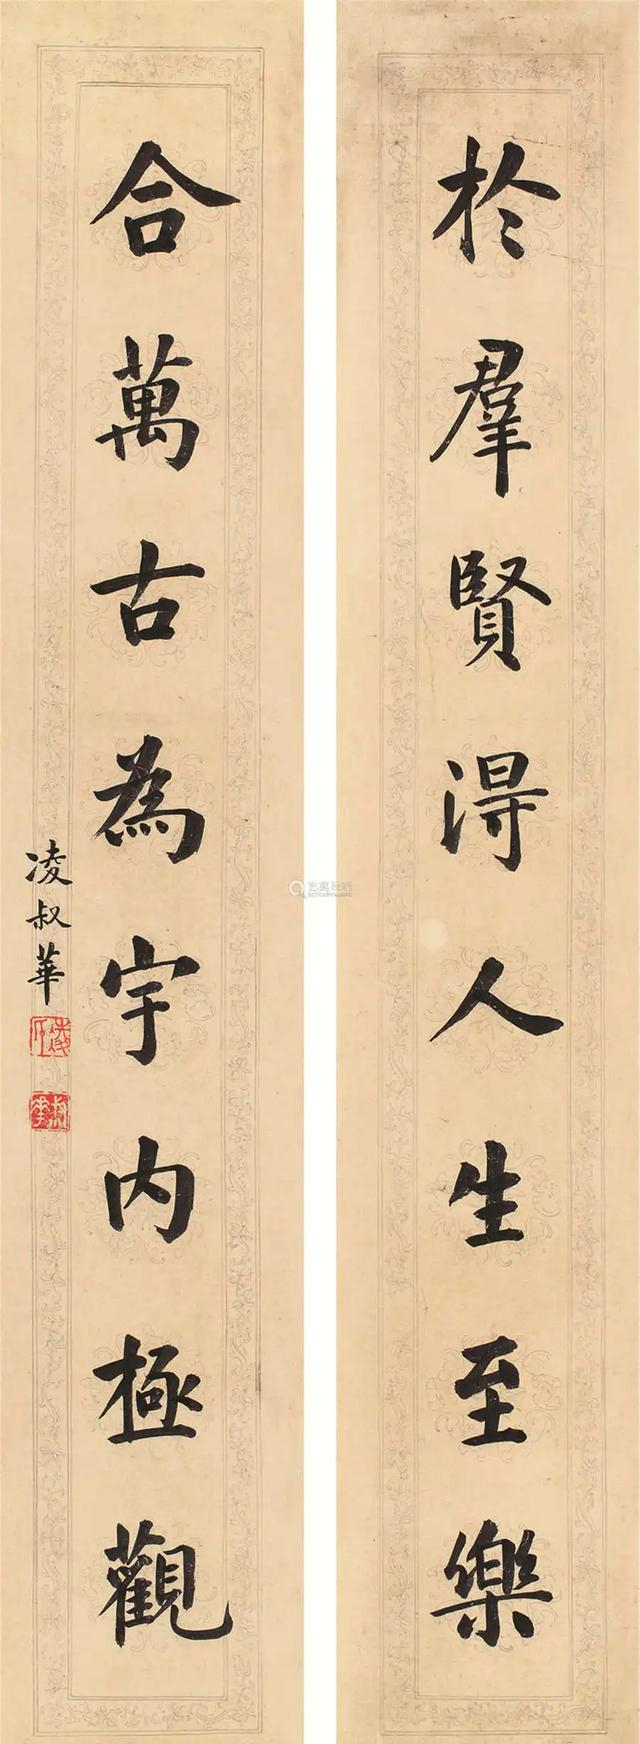 於羣賢得人生至樂
合萬古為宇内極觀
凌叔華